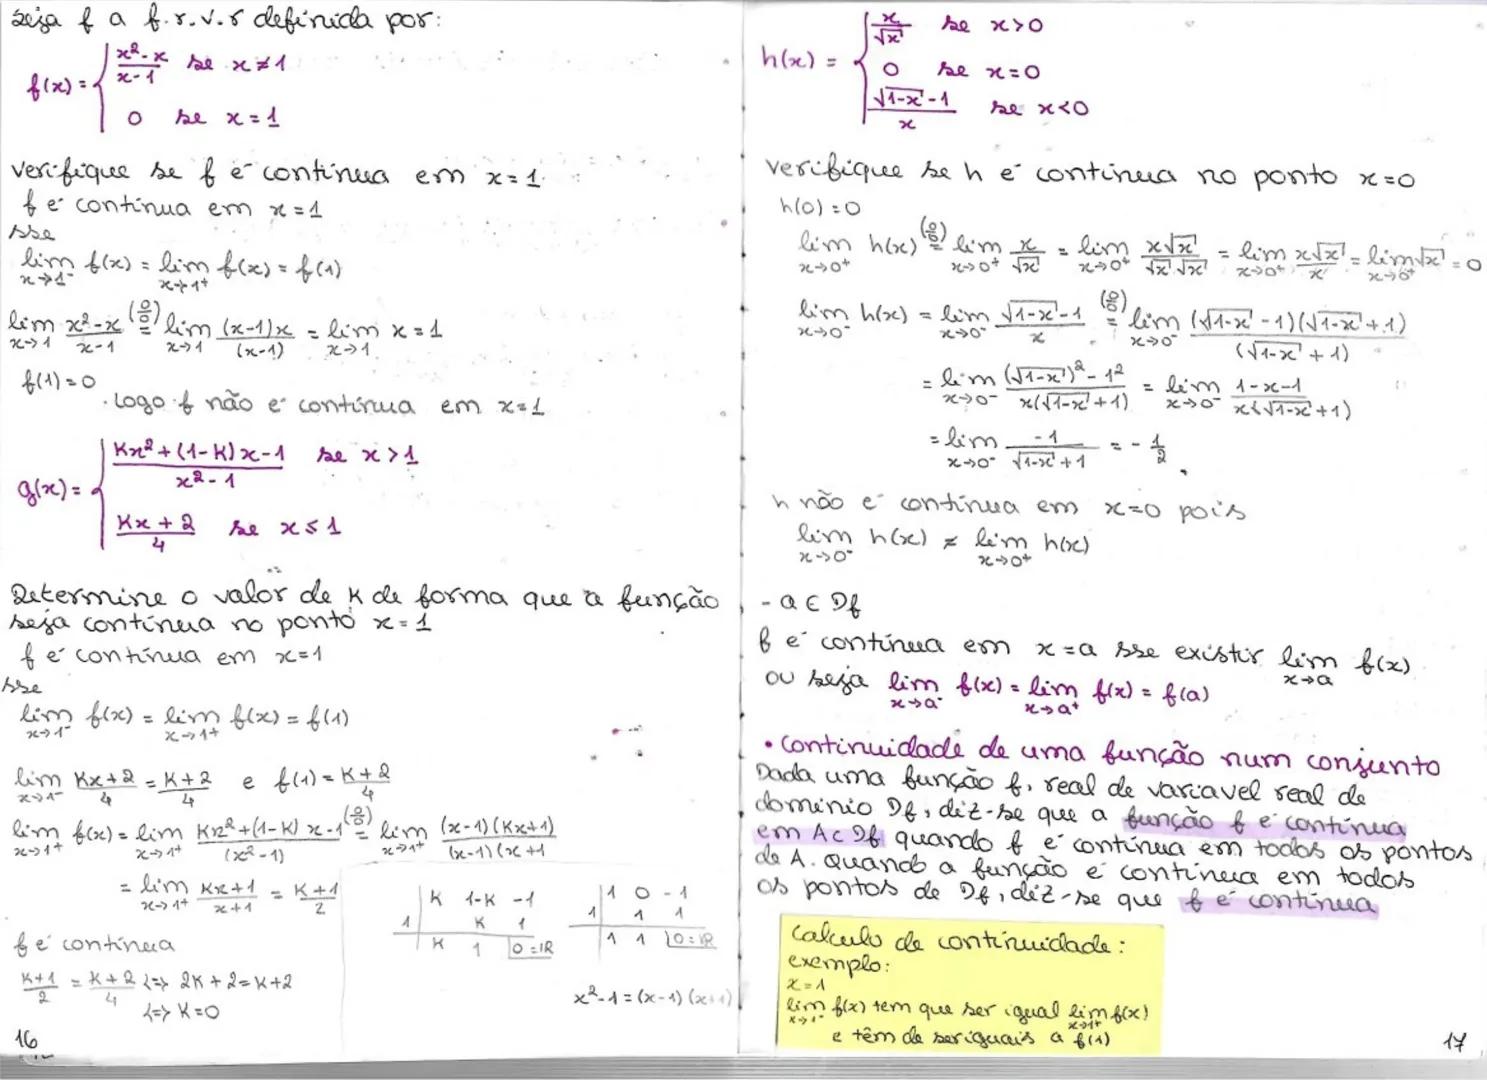 seja f a f.r.v.r definida por:
f(x) = { (x²-x)/(x-1) se x≠1
0 se x=1
verifique se f é contínua em x=1.
f é contínua em x=1
sse
lim x→1⁻ f(x) = lim x→1⁺ f(x) = f(1)
lim x→1 (x²-x)/(x-1) (0/0)= lim x→1 (x-1)x/(x-1) = lim x→1 x = 1
f(1)=0
. Logo f não é contínua em x=1
g(x) = { (Kx²+(1-K)x-1)/(x²-1) se x>1
(Kx+2)/4 se x≤1
Determine o valor de K de forma que a função
seja contínua no ponto x=1
f é contínua em x=1
sse
lim x→1⁻ f(x) = lim x→1⁺ f(x) = f(1)
lim x→1⁻ (Kx+2)/4 = (K+2)/4 e f(1) = (K+2)/4
lim x→1⁺ f(x) = lim x→1⁺ (Kx²+(1-K)x-1)/(x²-1) (0/0)= lim x→1⁺ (x-1)(Kx+1)/(x-1)(x+1
= lim x→1⁺ (Kx+1)/(x+1) = (K+1)/2
K 1-K -1
1 K 1
K 1 |0=R
1 0 -1
1 1 1
1 1 |0=R
x²-1=(x-1)(x+1)
f é contínua
(K+1)/2 = (K+2)/4 <=> 2K+2=K+2
<=> K=0
16
h(x) = { x/√x se x>0
0 se x=0
(√1-x -1)/x se x<0
verifique se h é contínua no ponto x=0
h(0)=0
lim x→0⁺ h(x) (0/0)= lim x→0⁺ x/√x = lim x→0⁺ x√x/√x√x = lim x→0⁺ x√x/x = lim x→0⁺ √x = 0
lim x→0⁻ h(x) = lim x→0⁻ (√1-x -1)/x (0/0)= lim x→0⁻ (√1-x -1)(√1-x +1)/(√1-x +1)
= lim x→0⁻ ((√1-x)² - 1²)/x(√1-x +1) = lim x→0⁻ (1-x-1)/x(√1-x +1)
= lim x→0⁻ -1/(√1-x +1) = -1/2
h não é contínua em x=0 pois
lim x→0⁻ h(x) ≠ lim x→0⁺ h(x)
- a ∈ Df
f é contínua em x=a sse existir lim x→a f(x)
ou seja lim x→a⁻ f(x) = lim x→a⁺ f(x) = f(a)
• continuidade de uma função num conjunto
Dada uma função f, real de variavel real de
dominio Df, diz-se que a função f é contínua
em A⊂Df quando f é contínua em todos os pontos
de A. Quando a função é contínua em todos
os pontos de Df, diz-se que f é contínua
Calculo de continuidade:
exemplo:
x=1
lim x→1⁻ f(x) tem que ser igual lim x→1⁺ f(x)
e têm de ser iguais a f(1)
17